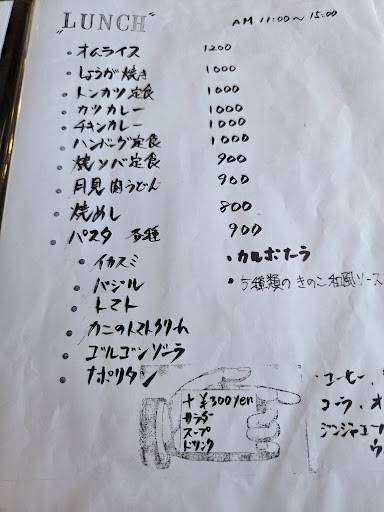 "LUNCH"
AM 11:00～15:00
・オムライス 1200
・しょうが焼き 1000
・トンカツ定食 1000
・カツカレー 1000
・チキンカレー 1000
・ハンバーグ定食 1000
・焼ソバ定食 900
・月見肉うどん 900
・焼めし 800
・パスタ 各種 900
・イカスミ
・バジル
・トマト
・カニのトマトクリーム
・ゴルゴンゾーラ
・ナポリタン
・カルボナーラ
・5種類のきのこ和風ソース
+¥300yen
サラダ
スープ
ドリンク
・コーヒー、
コーラ、オ
ジンジャエー
ウ